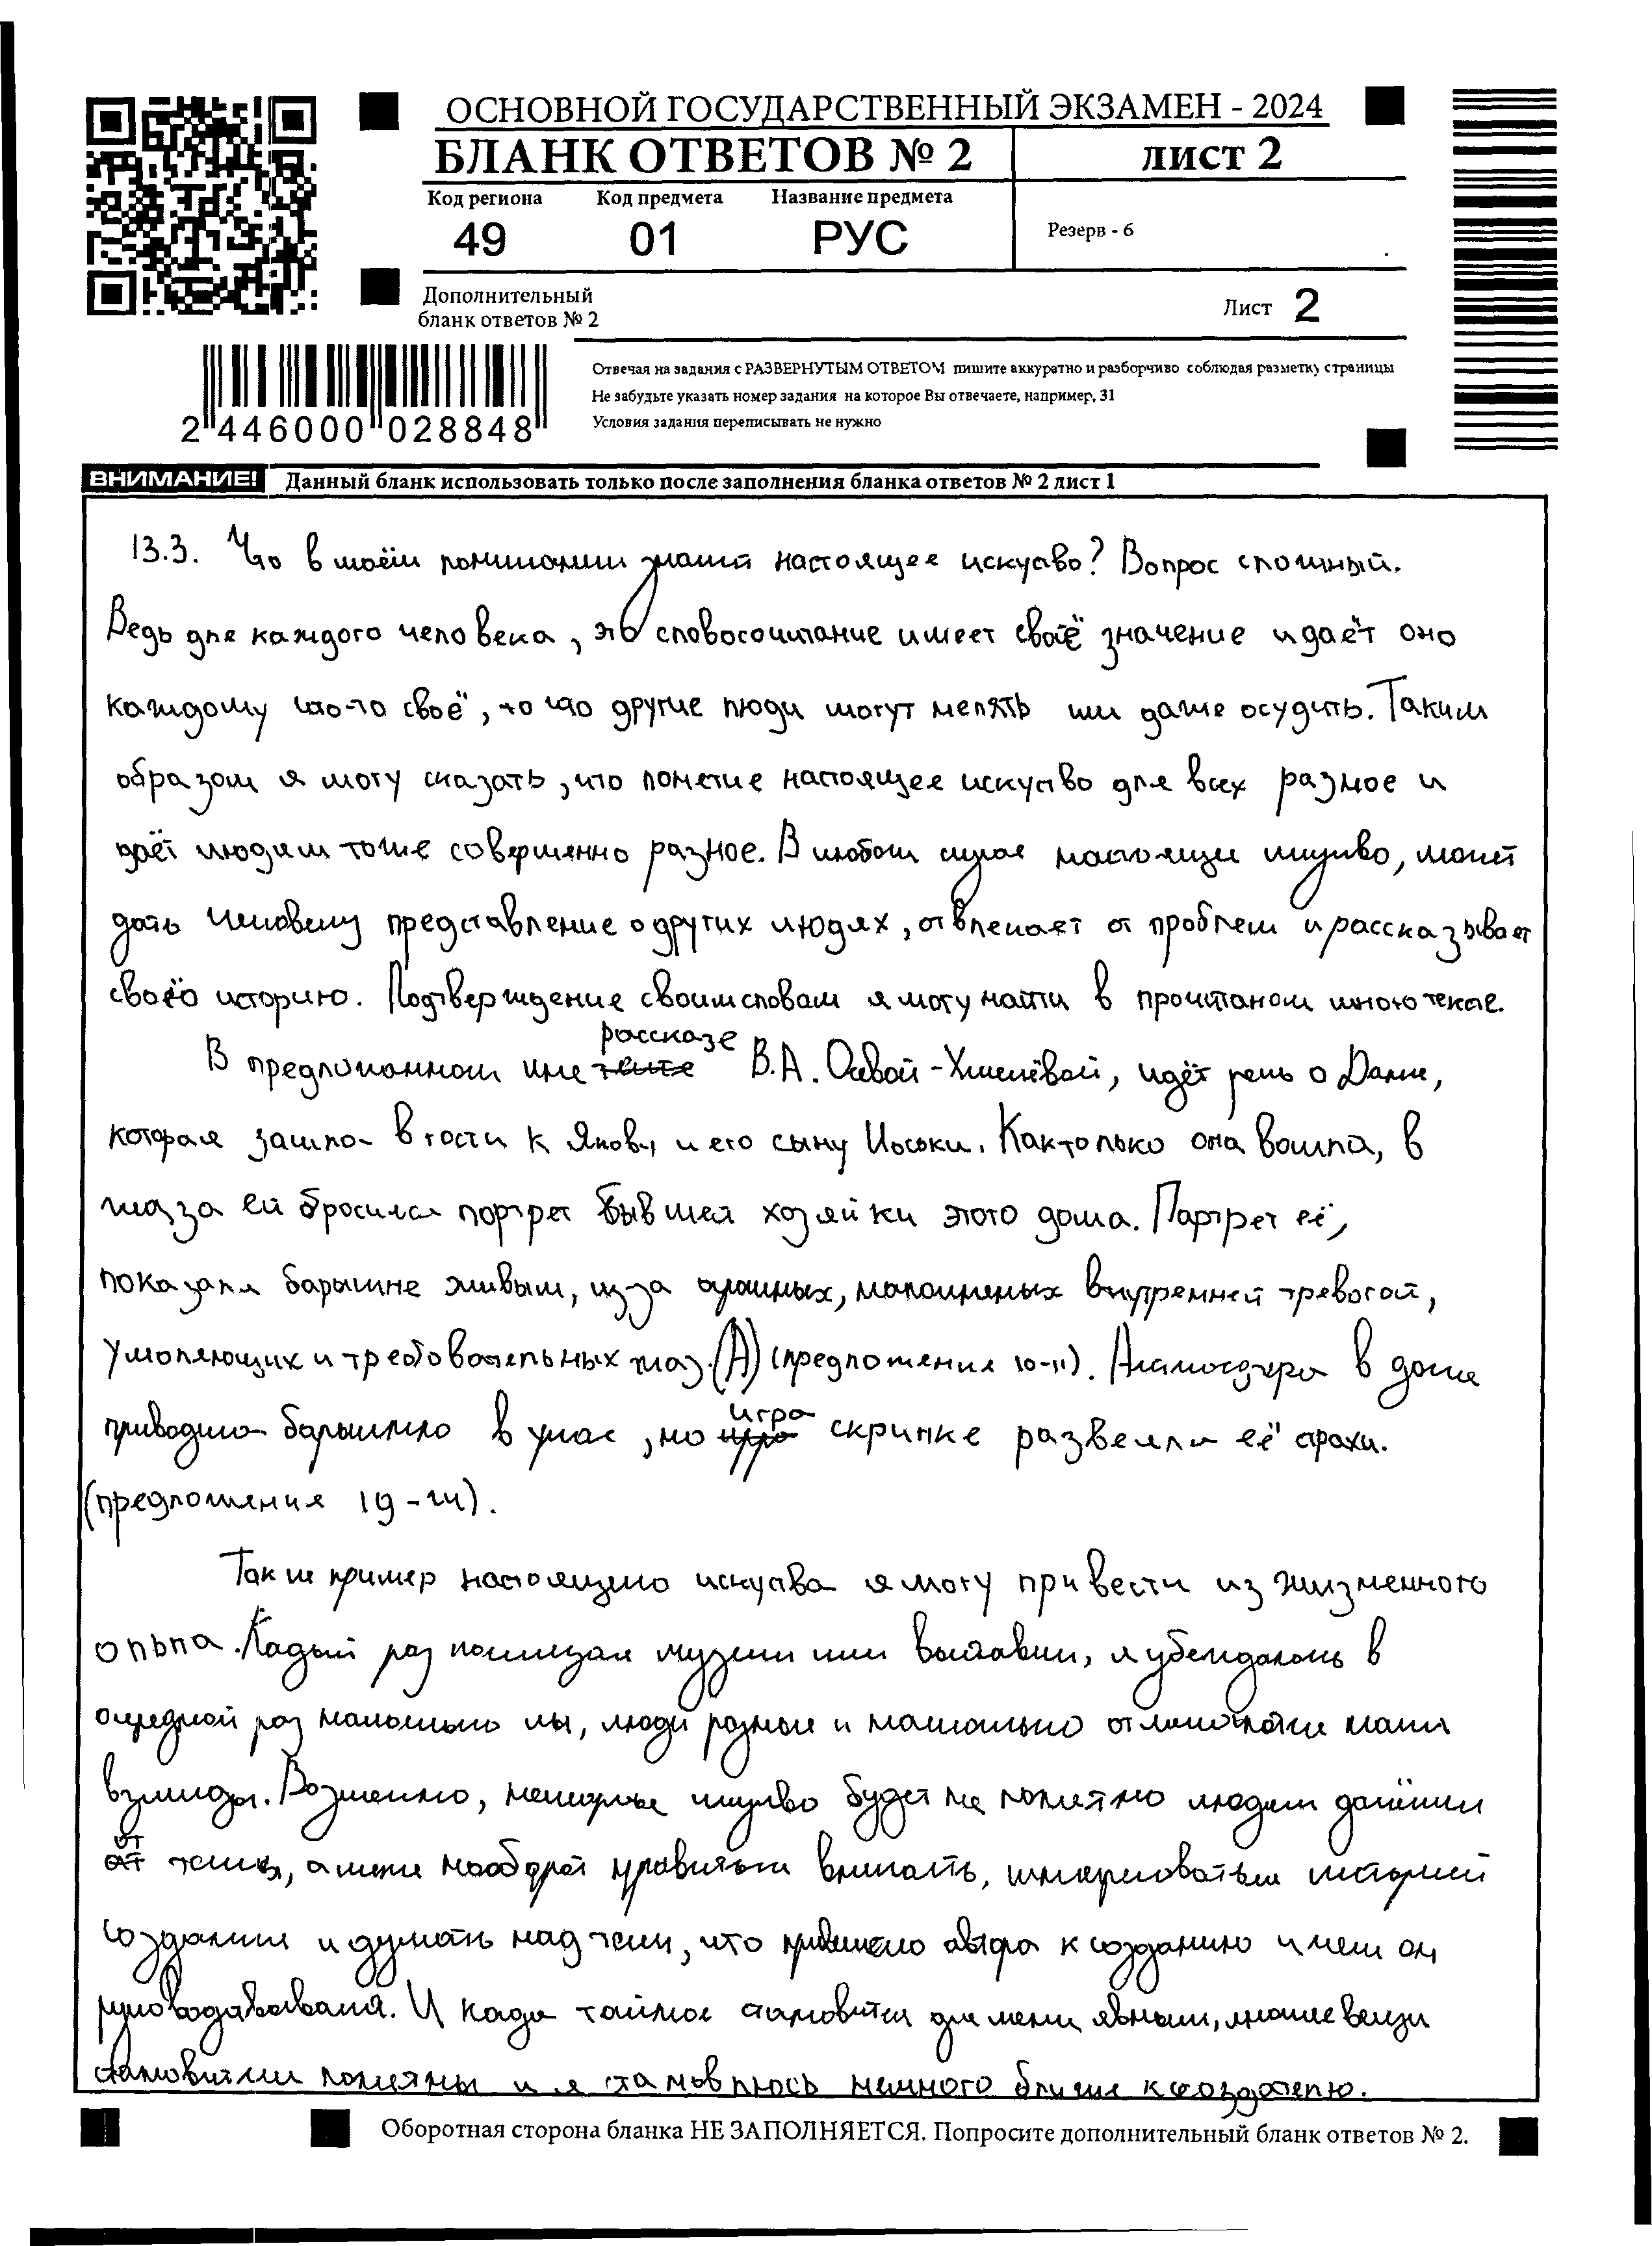 ОСНОВНОЙ ГОСУДАРСТВЕННЫЙ ЭКЗАМЕН - 2024
БЛАНК ОТВЕТОВ № 2
ЛИСТ 2
Код региона Код предмета Название предмета
49 01 РУС
Резерв - 6
Дополнительный
бланк ответов № 2
Лист 2
Отвечая на задания с РАЗВЕРНУТЫМ ОТВЕТОМ пишите аккуратно и разборчиво соблюдая разметку страницы
Не забудьте указать номер задания на которое Вы отвечаете, например, 31
Условия задания переписывать не нужно
2 446000 028848
ВНИМАНИЕ! Данный бланк использовать только после заполнения бланка ответов № 2 лист 1
13.3. Что в моём понимании настоящее искуство? Вопрос сложный.
Ведь для каждого человека, это словосочитание имеет своё значение и даёт оно
каждому что-то своё, то что другие люди могут менять или даже осудить. Таким
образом я могу сказать, что понетие настоящее искуство для всех разное и
даёт людям тоже совершенно разное. В любом случае настоящее искуство, может
дать человеку представление о других людях, отвлекает от проблем и рассказывает
своёю историю. Подтверждение своим словам я могу найти в прочитаном мною тексте.
В предложанном мне рассказе В.А. Осевой-Хмелёвой, идёт речь о Дание,
которая зашла в гости к Якову и его сыну Иоськи. Как только она вошла, в
глаза ей бросился портрет бывшей хозяйки этого дома. Портрет её,
показался барышне живым, из-за огромных, наполненых внутренней тревогой,
умоляющих и требовательных глаз. (А) (предложения 10-11). Атмосфера в доме
приводила барышню в ужас, но игра скрипке развеяла её страхи.
(предложения 19-24).
Так же пример настоящего искуства я могу привести из жизненного
опыта. Кадый раз посещая музеи или выставки, я убеждаюсь в
очередной раз насколько мы, люди разные и насколько отличаются наши
взгляды. Возможно, некоторые искуство будет не понятно людям далёким
от темы, а мне наоборот нравиться вникать, интересоваться историей
создания и думать над тем, что привело автора к созданию и чем он
руководствовался. И когда тайное становится для меня явным, многие вещи
становиться понятны и я становлюсь немного ближе к создателю.
Оборотная сторона бланка НЕ ЗАПОЛНЯЕТСЯ. Попросите дополнительный бланк ответов № 2.